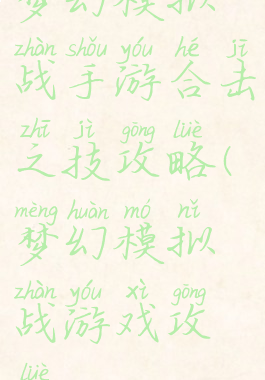 梦幻模拟
zhàn shǒu yóu hé jī
战手游合击
zhī jì gōng lüè
之技攻略(
mèng huàn mó nǐ
梦幻模拟
zhàn yóu xì gōng
战游戏攻
lüè